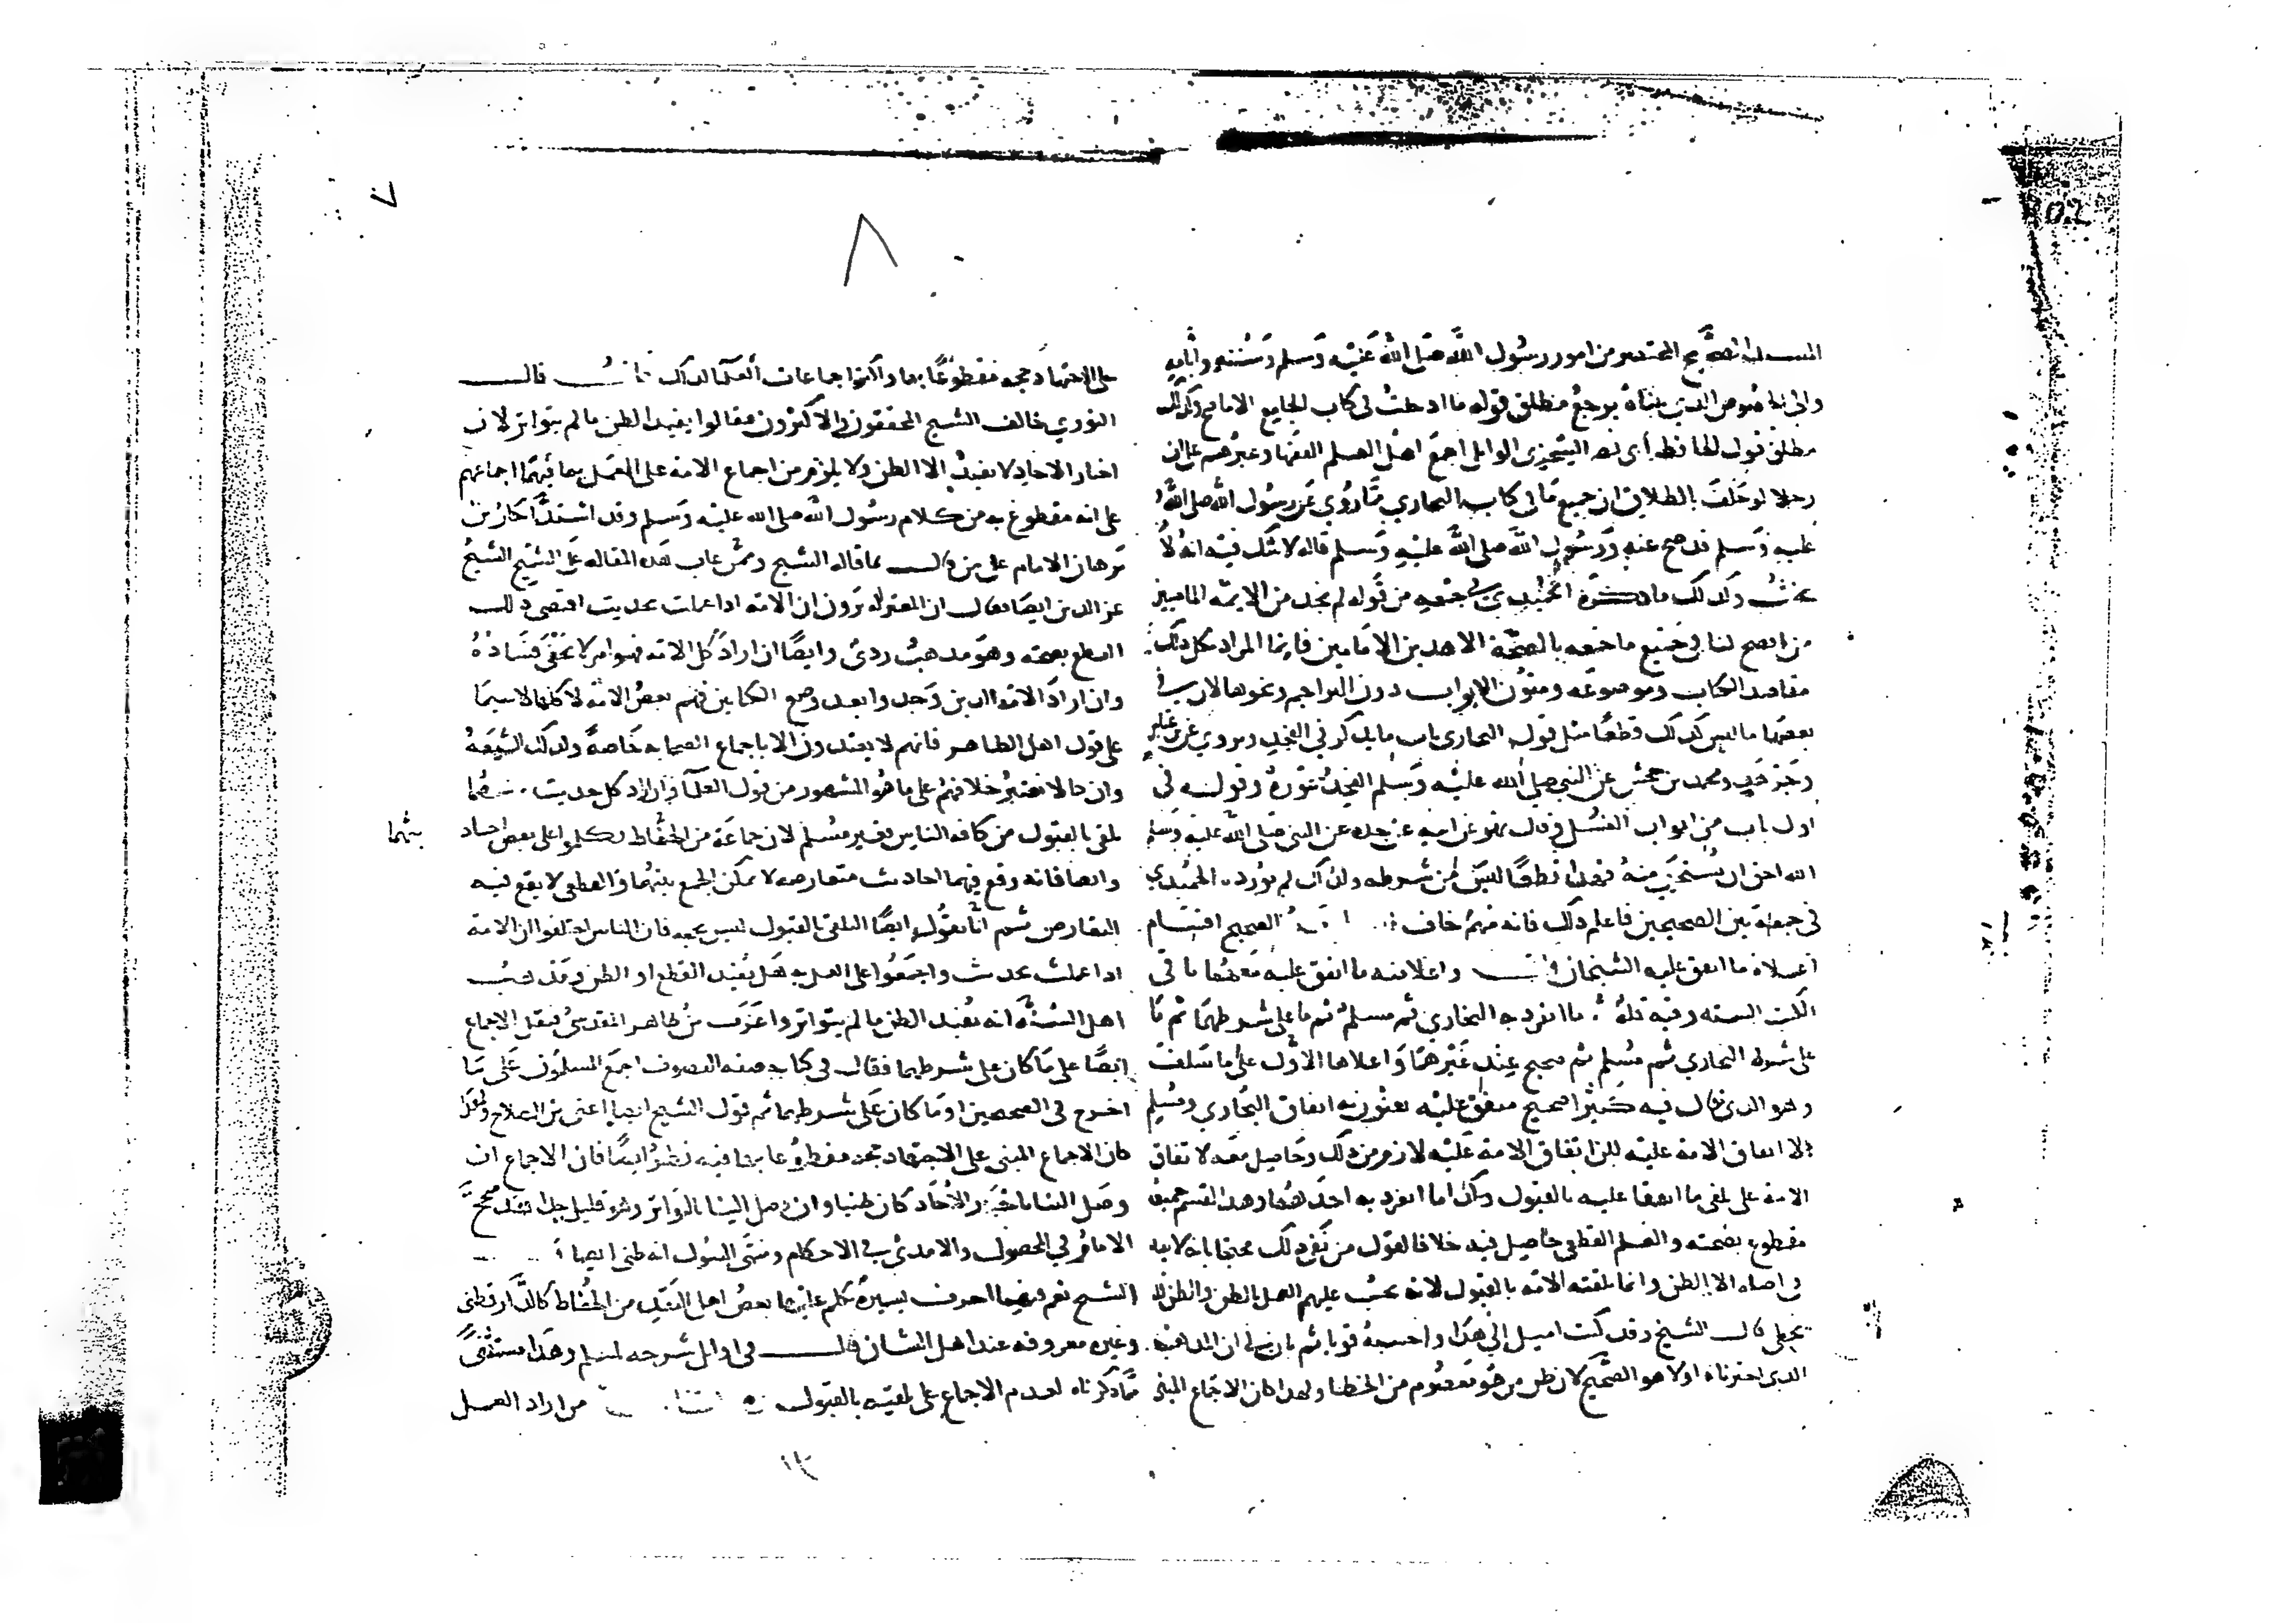 المسند الصحيح المختصر من امور رسول الله صلى الله عليه وسلم وسننه وايامه
والى الخصوص الذي بيناه يرجع مطلق قوله ما ادخلت في كتاب الجامع الا ما صح وكذلك
مطلق قول الحافظ أبي نصر السجزي الوايلي اجمع اهل العلم الفقها وغيرهم على ان
رجلا لو حلف بالطلاق ان جميع ما في كتاب البخاري مما روي عن رسول الله صلى الله
عليه وسلم قد صح عنه ورسول الله صلى الله عليه وسلم قاله لا شك فيه انه لا
يحنث وكذلك ما ذكره الحميدي في جمعه من قوله لم نجد من الايمه الماضيين
من افصح لنا في جميع ما جمعه بالصحة الا هذين الامامين فانما المراد بكل ذلك
مقاصد الكتاب وموضوعه ومتون الابواب دون التراجم ونحوها لان في
بعضها ما ليس كذلك قطعا مثل قول البخاري باب ما يذكر في الفخذ ويروي عن ابن عباس
وجرهد ومحمد بن جحش عن النبي صلى الله عليه وسلم الفخذ عورة وقوله في
اول باب من ابواب الغسل وقال بهز عن ابيه عن جده عن النبي صلى الله عليه وسلم
الله احق ان يستحيى منه فهذا قطعا ليس من شرطه ولذلك لم يورده الحميدي
في جمعه بين الصحيحين فاعلم ذلك فانه مهم خاف الصحيح اقسام
اعلاه ما اتفق عليه الشيخان واعلا منه ما اتفق عليه معهما باقي
الكتب الستة وفيه قلة ثم ما انفرد به البخاري ثم مسلم ثم ما على شرطهما ثم ما
على شرط البخاري ثم مسلم ثم صحيح عند غيرهما واعلاها الاول على ما سلف
وهو الذي يقال فيه كثيرا صحيح متفق عليه يعنون به اتفاق البخاري ومسلم
لا اتفاق الامة عليه لكن اتفاق الامة عليه لازم من ذلك وحاصل معه لاتفاق
الامة على تلقي ما اتفقا عليه بالقبول وكذا ما انفرد به احدهما وهذا القسم جميعه
مقطوع بصحته والعلم القطعي حاصل فيه خلافا لقول من نفى ذلك محتجا بانه لا يفيد
في اصله الا الظن وانما تلقته الامة بالقبول لانه يجب عليهم العمل بالظن والظن قد
يخطي قال الشيخ وقد كنت اميل الى هذا واحسبه قويا ثم بان لي ان المذهب
الذي اخترناه اولا هو الصحيح لان ظن من هو معصوم من الخطا ولهذا كان الاجماع المبني
٧
٨
على الاجتهاد حجه مقطوعا بها واكثر اجماعات العلما لذلك قال
النووي خالف الشيخ المحققون والاكثرون فقالوا يفيد الظن ما لم يتواتر لان
اخبار الاحاد لا تفيد الا الظن ولا يلزم من اجماع الامة على العمل بما فيهما اجماعهم
على انه مقطوع به من كلام رسول الله صلى الله عليه وسلم وقد اشتد انكار بن
برهان الامام على من قال بما قاله الشيخ وممن عاب هذه المقاله على الشيخ الشيخ
عز الدين ايضا فقال ان المعتزله يرون ان الامة اذا عملت بحديث اقتضى ذلك
القطع بصحته وهو مذهب ردئ وايضا ان اراد كل الامه فهو امر لا يخفى فساده
وان اراد الامة الذين وجدوا بعد وضع الكتابين فهم بعض الامة لا كلها لا سيما
على قول اهل الظاهر فانهم لا يعتدون الا باجماع الصحابه خاصة وكذلك الشيعة
وان كنا لا نعتبر خلافهم على ما هو المشهور من قول العلما وان اراد كل حديث
تلقي بالقبول من كافه الناس فغير مسلم لان جماعة من الحفاظ تكلموا على بعض احاد
يثهما
وايضا فانه وقع فيهما احاديث متعارضه لا يمكن الجمع بينهما والقطعي لا يقع فيه
التعارض ثم انا نقول ايضا التلقي بالقبول ليس بحجه فان الناس اختلفوا ان الامة
اذا عملت بحديث واجمعوا على العمل به هل يفيد القطع او الظن ومذهب
اهل السنة انه يفيد الظن ما لم يتواتر واغرب بن طاهر المقدسي فنقل الاجماع
ايضا على ما كان على شرطهما فقال في كتاب صفه التصوف اجمع المسلمون على ما
اخرج في الصحيحين او ما كان على شرطهما ثم قول الشيخ ايضا أعني بن الصلاح ولهذا
كان الاجماع المبني على الاجتهاد حجه مقطوعا بها فيه نظر ايضا فان الاجماع ان
وصل الينا باخبار الاحاد كان ظنيا وان وصل الينا بالتواتر وهو قليل جدا فقد صحح
الامام في المحصول والامدي في الاحكام ومنتهى السول انه ظني ايضا
الشيخ نعم فيهما احرف يسيرة تكلم عليها بعض اهل النقد من الحفاظ كالدارقطني
وغيره معروفه عند اهل الشان قال في اوايل شرحه لمسلم وهذا مستثنى
مما ذكرناه لعدم الاجماع على تلقيه بالقبول من اراد العمل